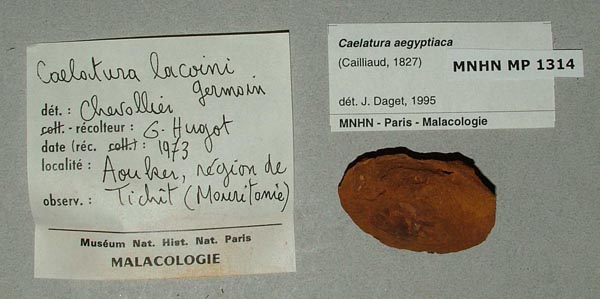 Caelatura lacoini
Germain
dét. : Chevallier
coll. - récolteur : G. Hugot
date (réc. coll.) : 1973
localité : Aouker, région de
observ. : Tichît (Mauritanie)
Muséum Nat. Hist. Nat. Paris
MALACOLOGIE
Caelatura aegyptiaca
(Cailliaud, 1827)
MNHN MP 1314
dét. J. Daget, 1995
MNHN - Paris - Malacologie